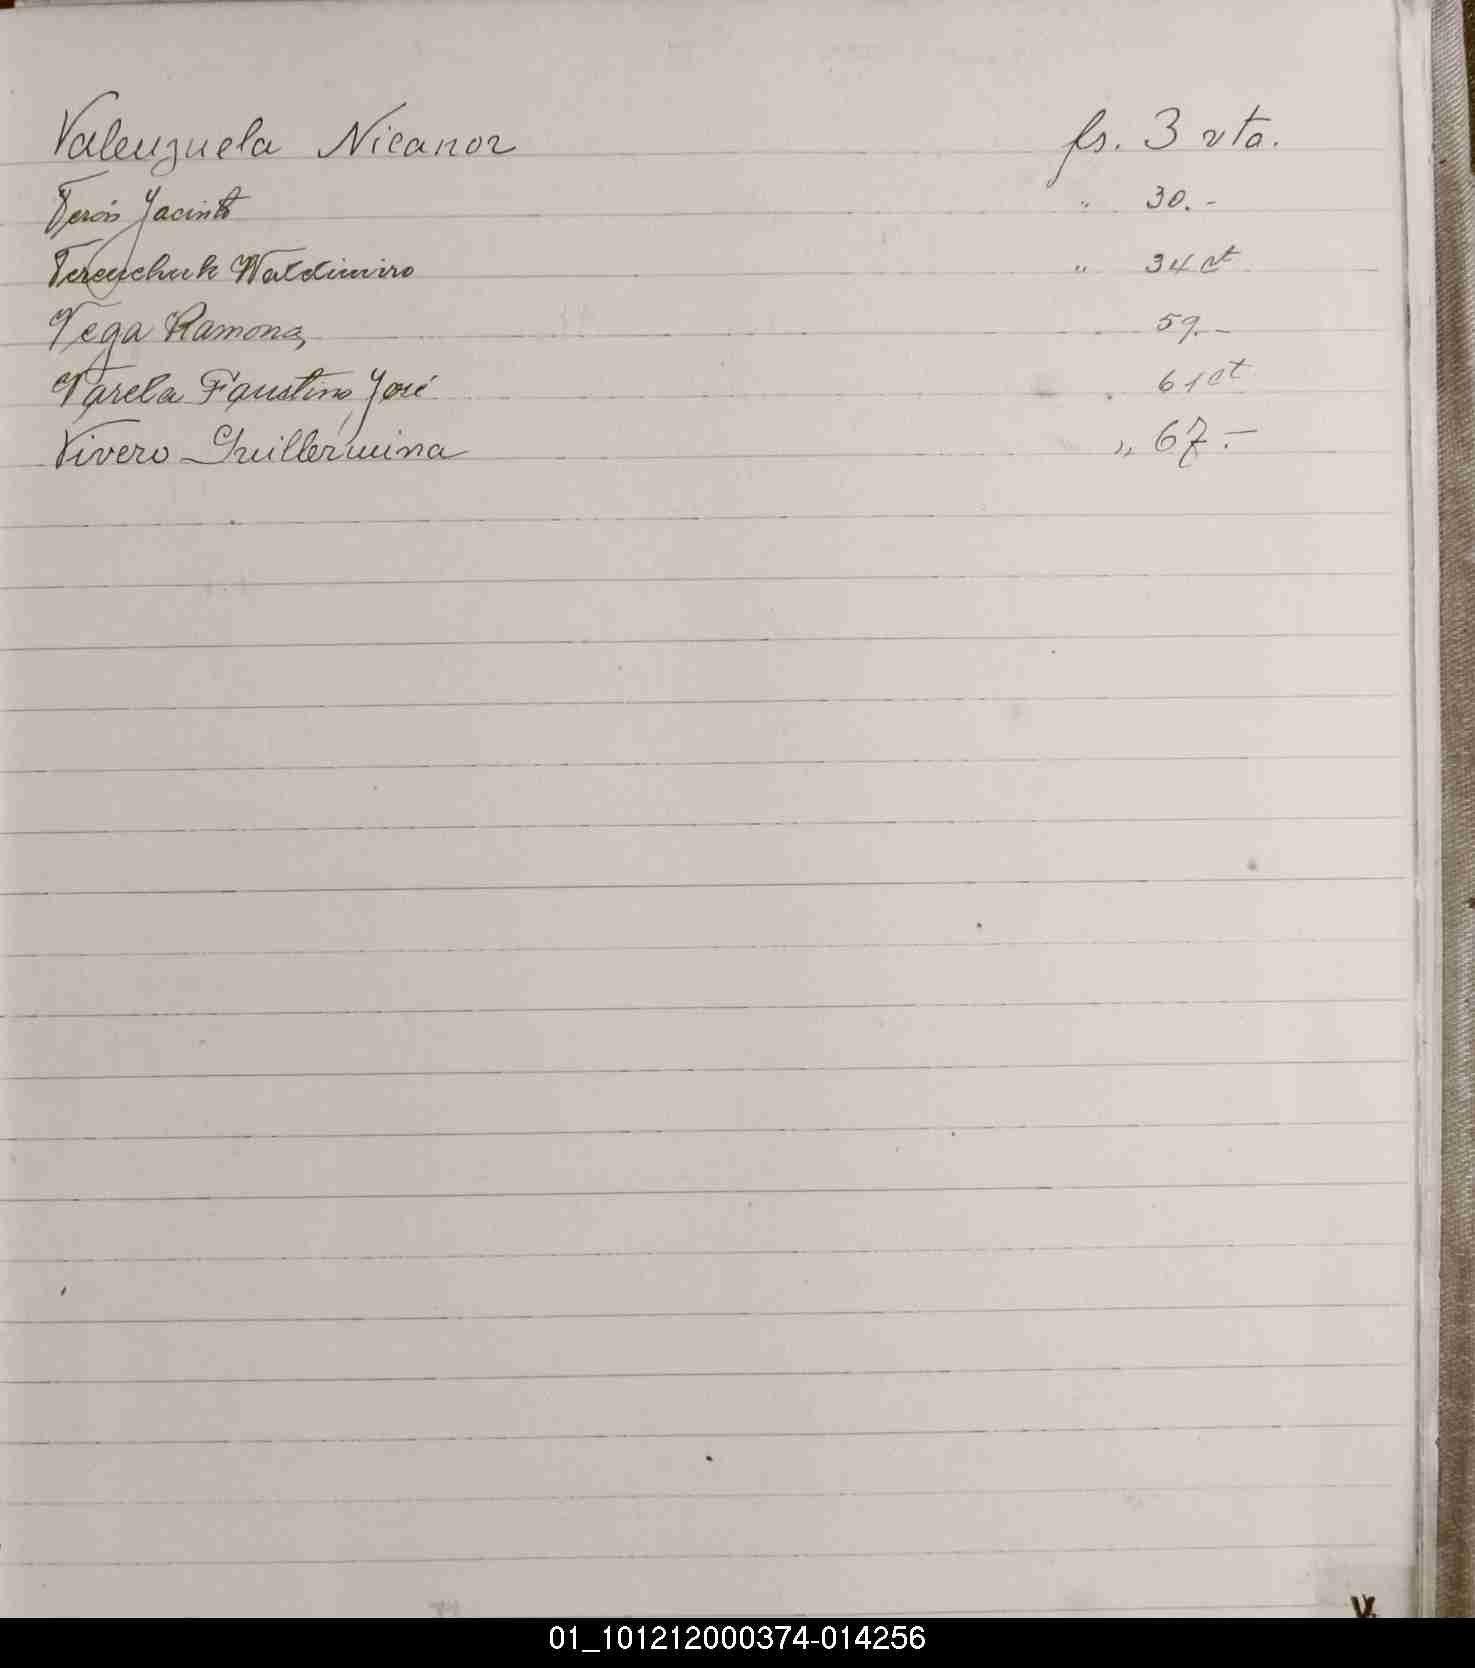 Valenzuela Nicanor fs. 3 vta.
Jacinto " 30.-
Terenchuk Waldimiro " 34 vt
Vega Ramona, 59.-
Varela Faustino, José 61 vt
Vivero Guillermina ,, 67.-
V.
01_101212000374-014256